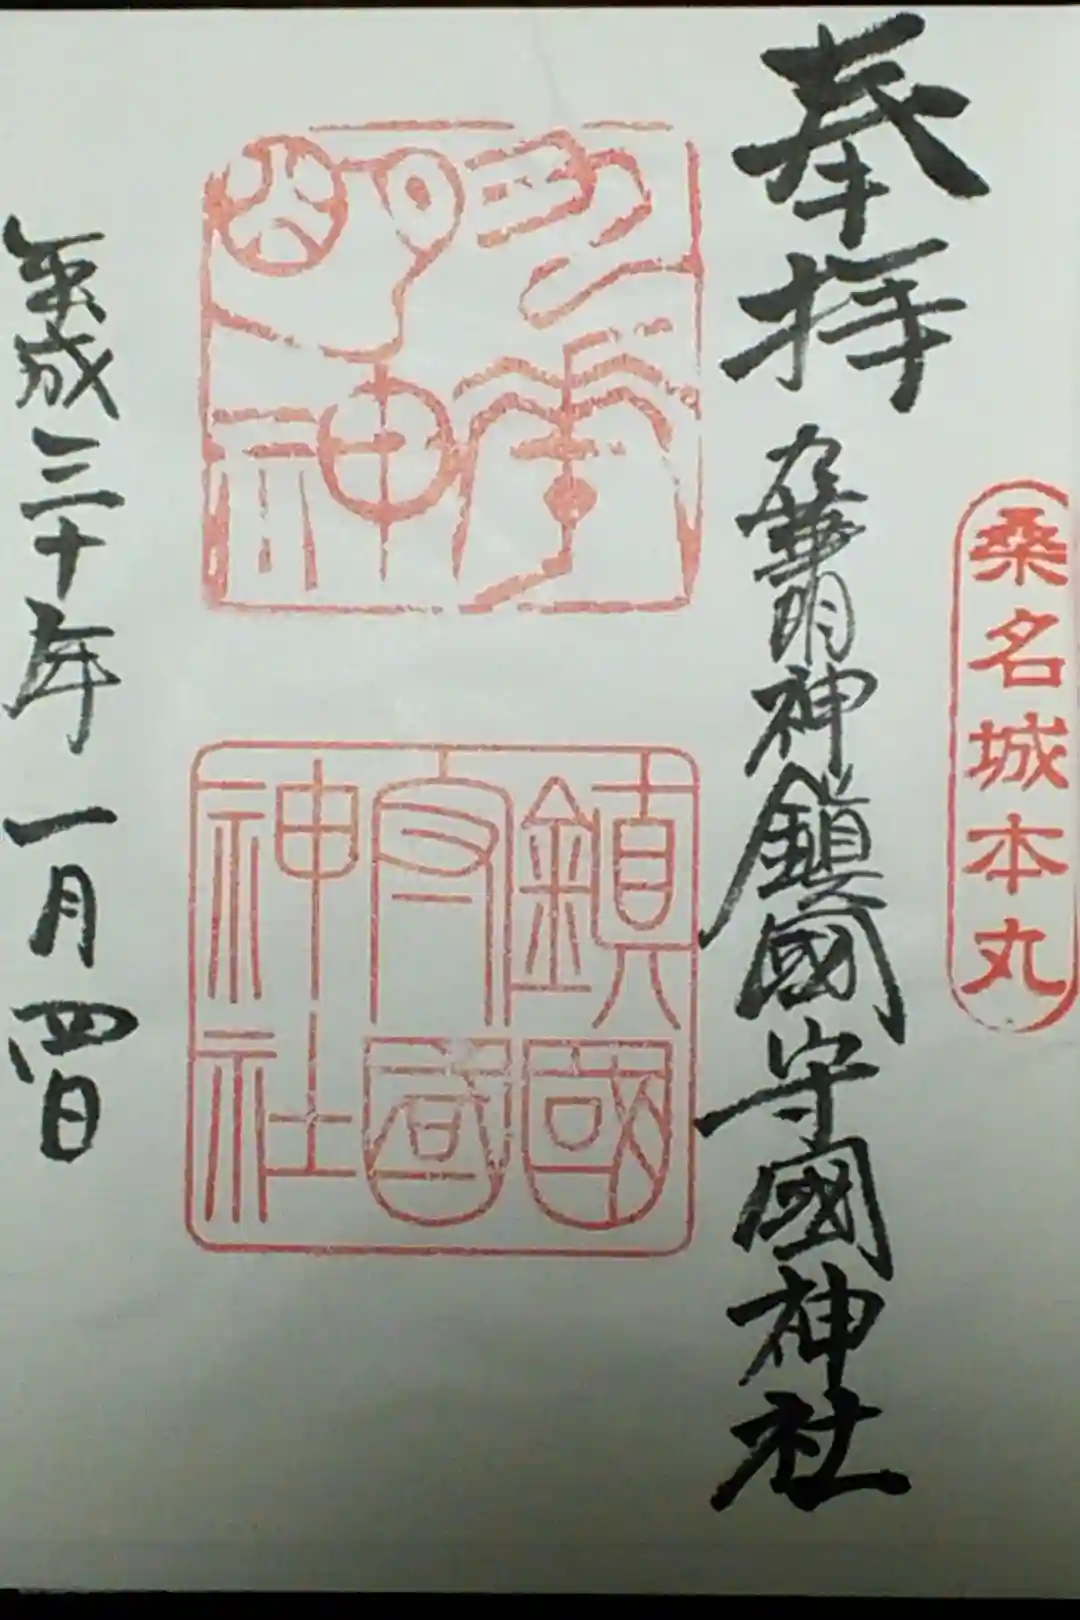 桑名城本丸
奉拝
九華明神鎮國守國神社
九華明神
鎮國守國神社
平成三十年一月四日